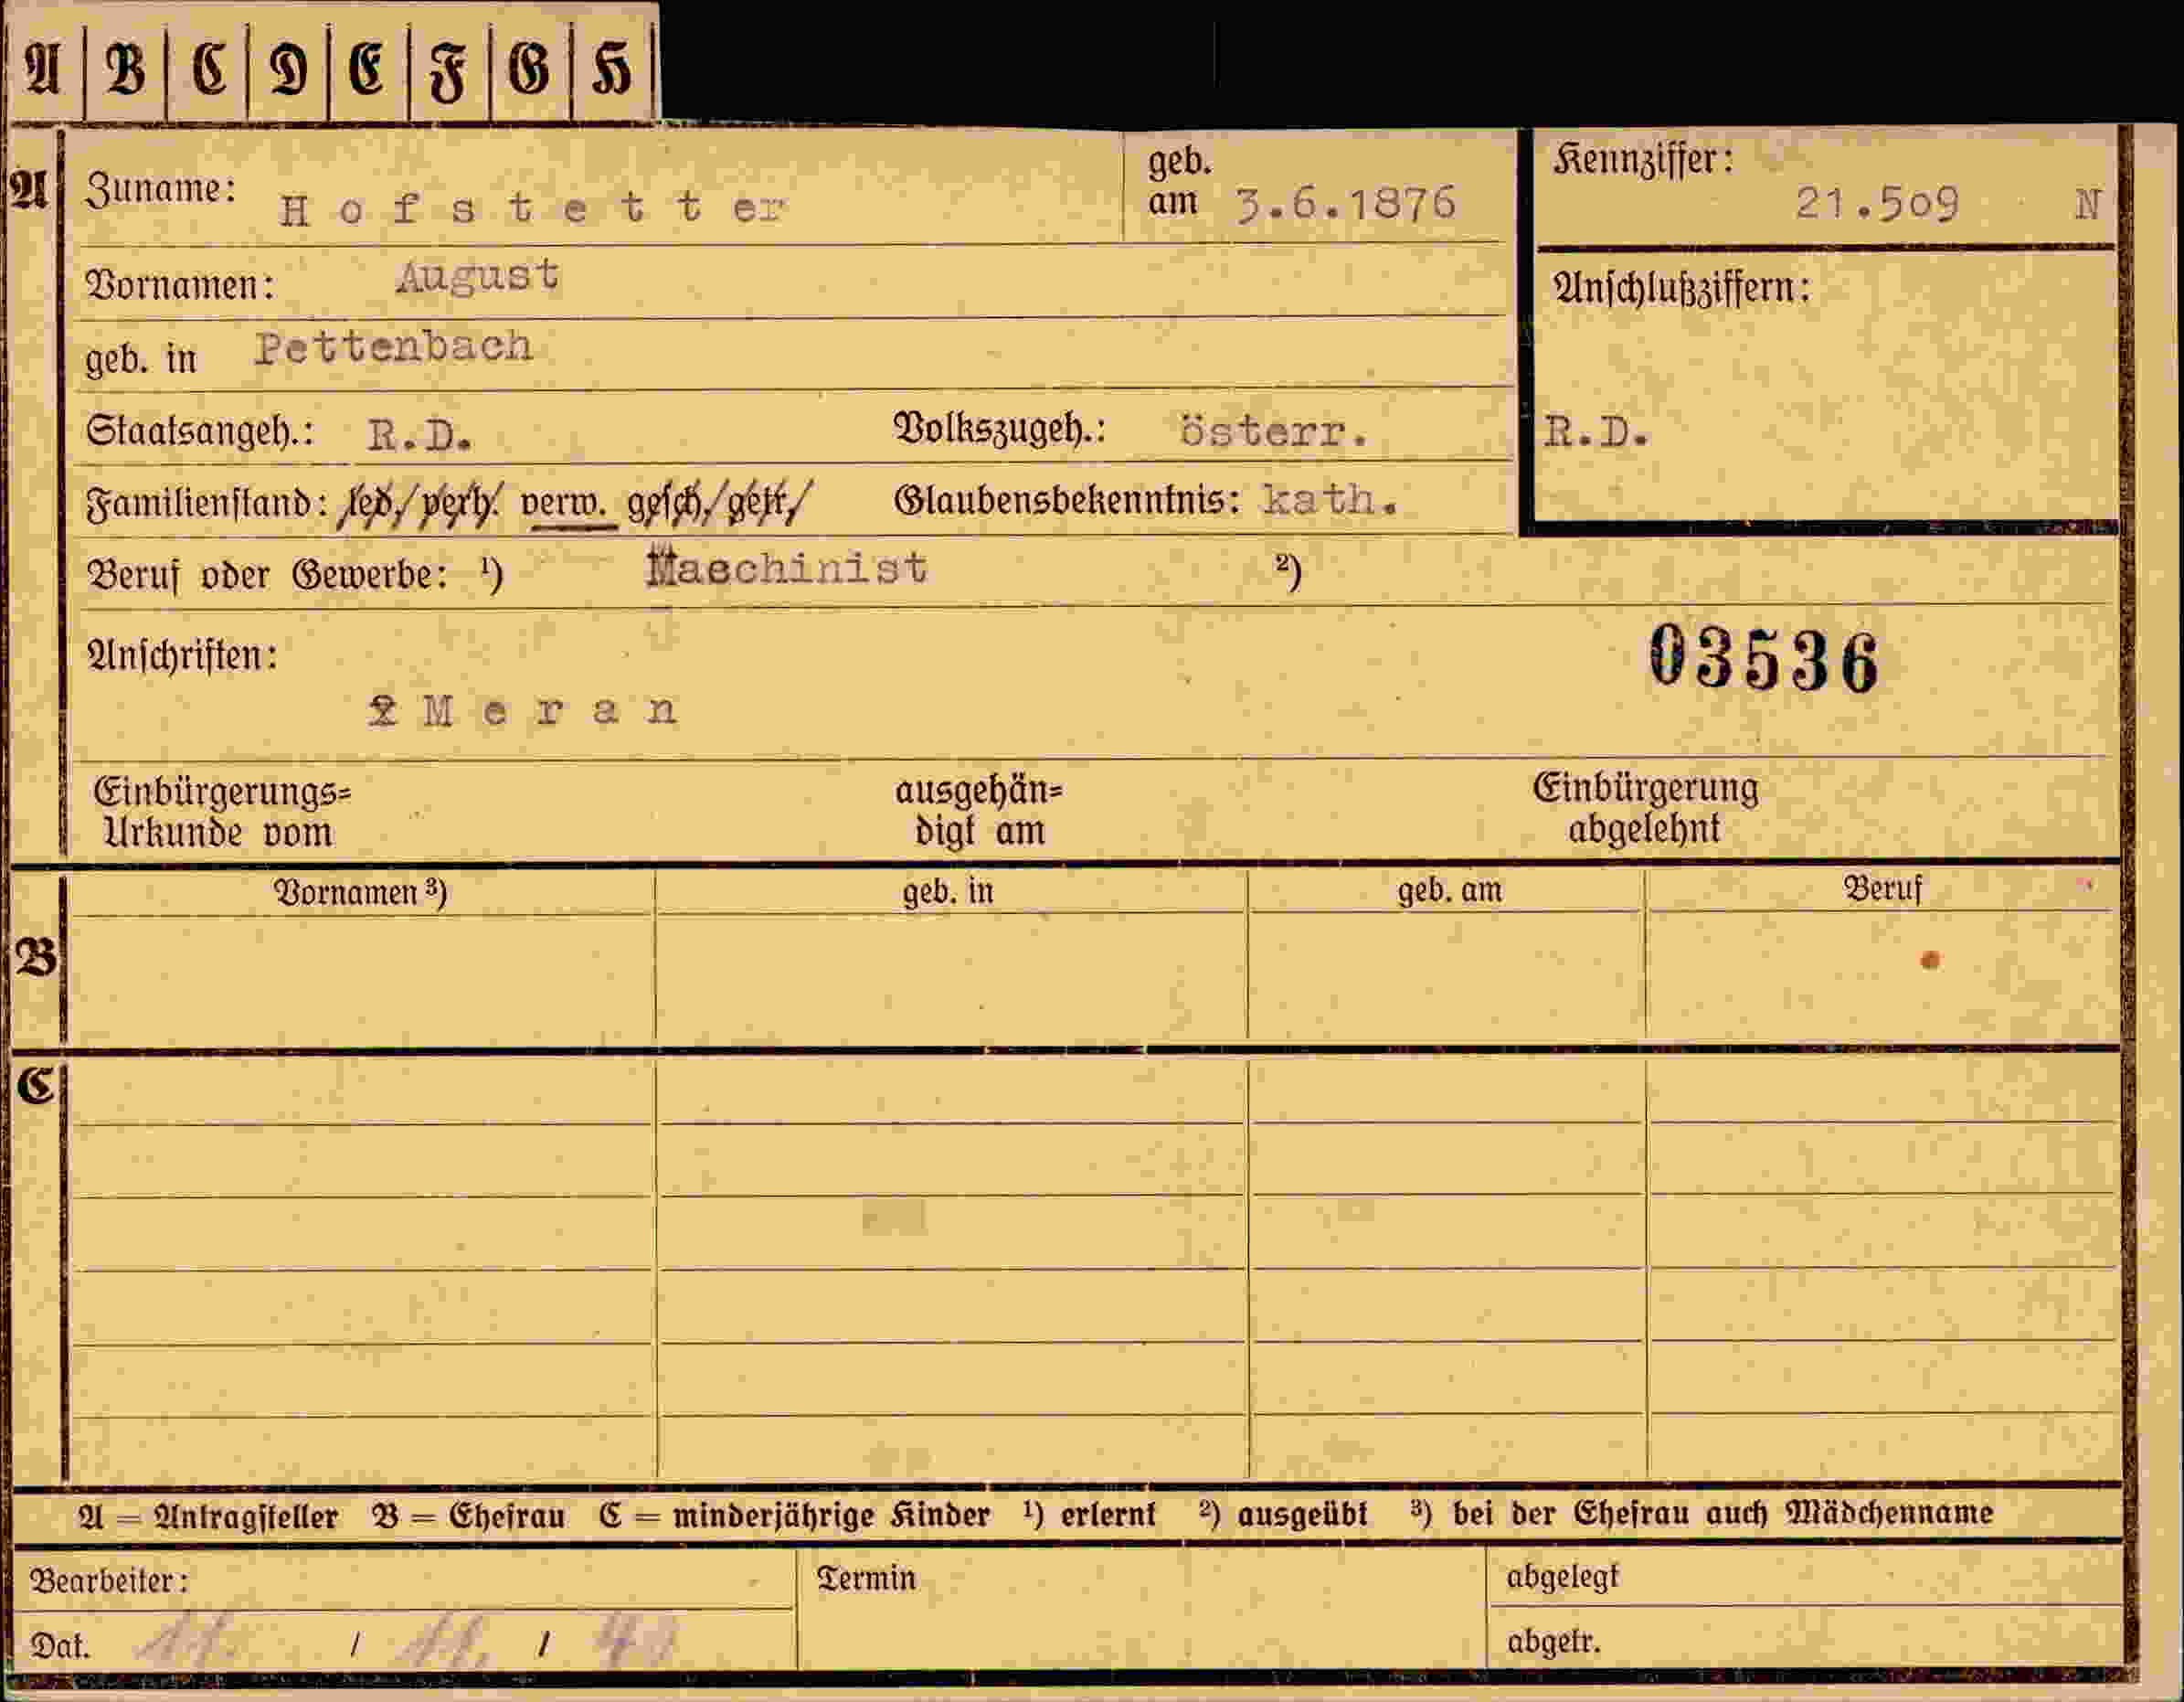 A B C D E F G H
A Zuname: Hofstetter geb. am 3.6.1876
Kennziffer: 21.509 N
Vornamen: August
Anschlußziffern:
geb. in Pettenbach
Staatsangeh.: R.D. Volkszugeh.: österr. R.D.
Familienstand: led./verh. verw. gesch./getr./ Glaubensbekenntnis: kath.
Beruf oder Gewerbe: ¹) Maschinist ²)
Anschriften:
03536
Meran
Einbürgerungs= Urkunde vom ausgehän= digt am Einbürgerung abgelehnt
Vornamen ³) geb. in geb. am Beruf
B
C
A = Antragsteller B = Ehefrau C = minderjährige Kinder ¹) erlernt ²) ausgeübt ³) bei der Ehefrau auch Mädchenname
Bearbeiter: Termin abgelegt
Dat. 11. / 11. / 40 abgetr.